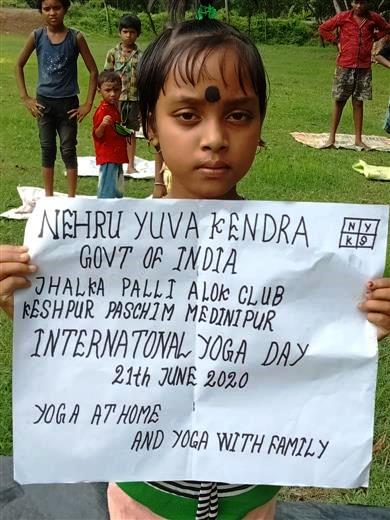 NEHRU YUVA KENDRA
N Y
K S
GOVT OF INDIA
JHALKA PALLI ALOK CLUB
KESHPUR PASCHIM MEDINIPUR
INTERNATONAL YOGA DAY
21th JUNE 2020
YOGA AT HOME
AND YOGA WITH FAMILY